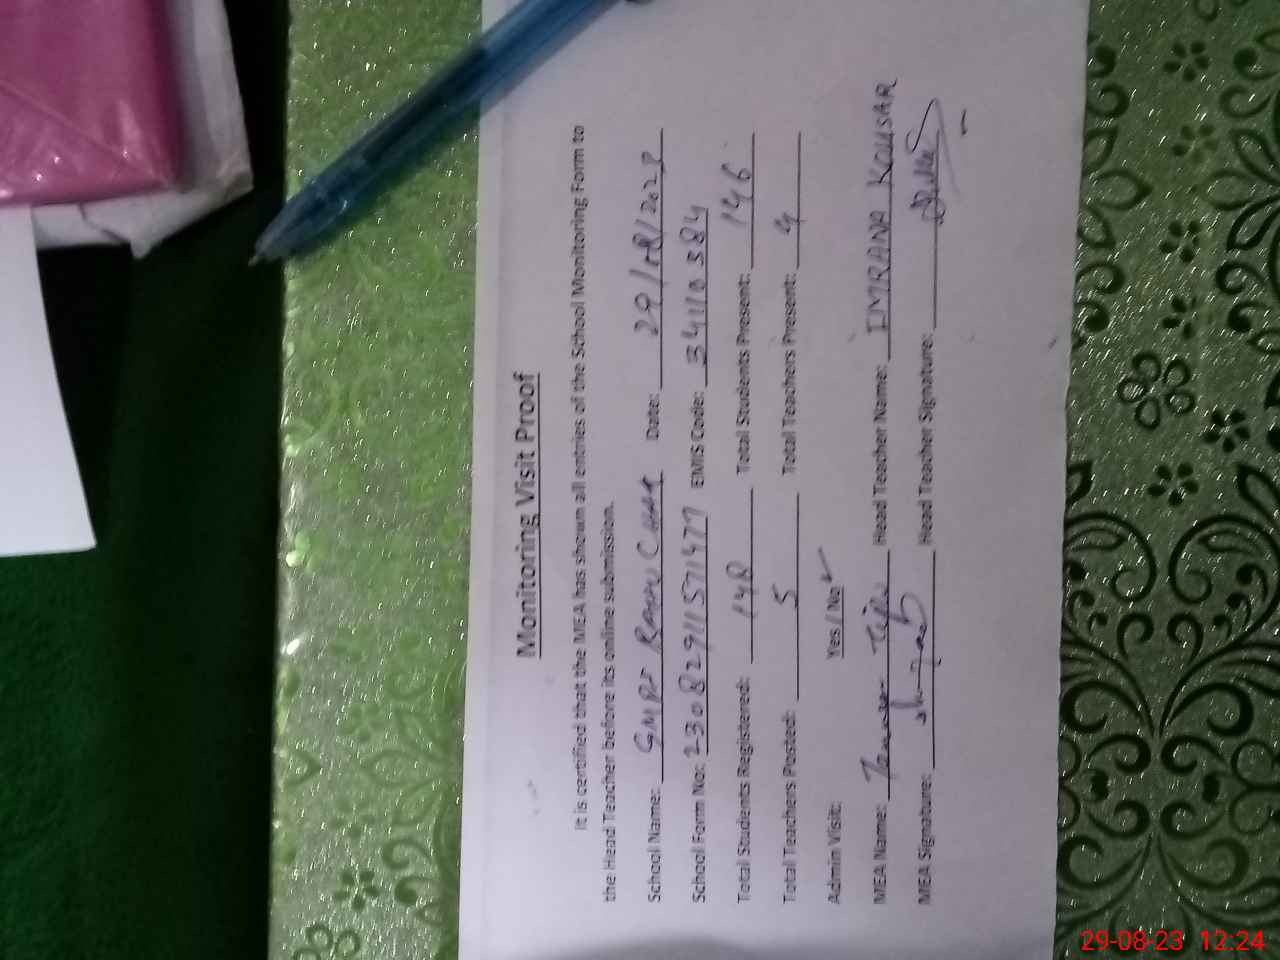 Monitoring Visit Proof
It is certified that the MEA has shown all entries of the School Monitoring Form to
the Head Teacher before its online submission.
School Name: GMPS Date: 29/08/2023
School Form No: EMIS Code: 34110384
Total Students Registered: 148 Total Students Present: 146
Total Teachers Posted: 5 Total Teachers Present: 4
Admin Visit: Yes / No ✓
MEA Name: Head Teacher Name: IMRANA KOUSAR
MEA Signature: Head Teacher Signature:
29-08-23 12:24